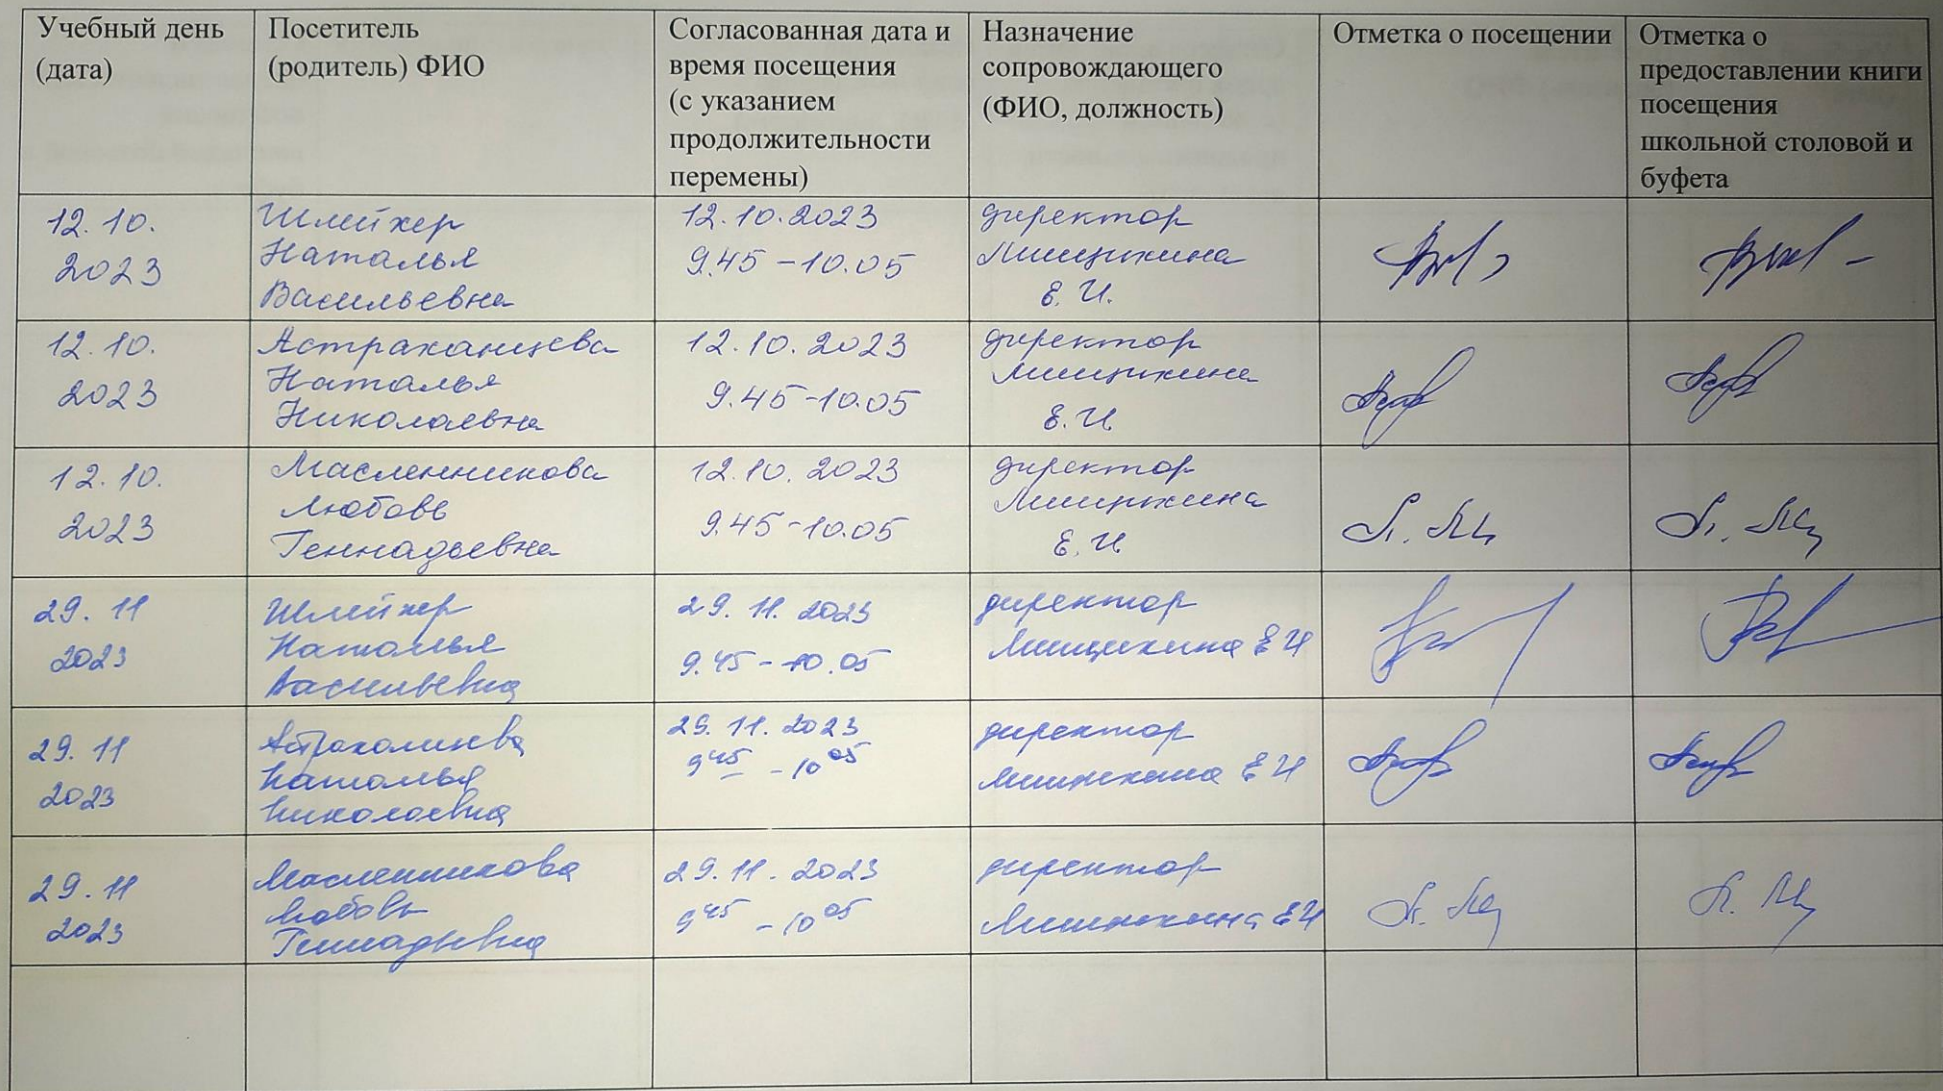 Учебный день
(дата)
Посетитель
(родитель) ФИО
Согласованная дата и
время посещения
(с указанием
продолжительности
перемены)
Назначение
сопровождающего
(ФИО, должность)
Отметка о посещении
Отметка о
предоставлении книги
посещения
школьной столовой и
буфета
12.10.
2023
Шлейхер
Наталья
Васильевна
12.10.2023
9.45-10.05
директор
Е.И.
12.10.
2023
Астраханцева
Наталья
Николаевна
12.10.2023
9.45-10.05
директор
Е.И.
12.10.
2023
Масленникова
Любовь
Геннадьевна
12.10.2023
9.45-10.05
директор
Е.И.
29.11
2023
Шлейхер
Наталья
Васильевна
29.11.2023
9.45-10.05
директор
ЕИ
29.11
2023
Астраханцева
Наталья
Николаевна
29.11.2023
9 45 - 10 05
директор
ЕИ
29.11
2023
Масленникова
Любовь
Геннадьевна
29.11.2023
9 45 - 10 05
директор
ЕИ